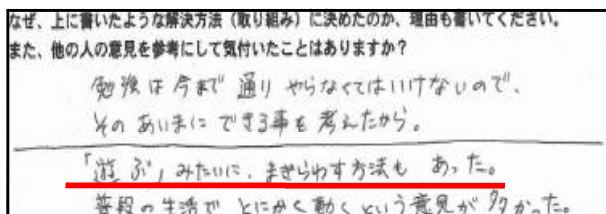 なぜ、上に書いたような解決方法（取り組み）に決めたのか、理由も書いてください。
また、他の人の意見を参考にして気付いたことはありますか？
勉強は今まで通りやらなくてはいけないので、
そのあいまにできる事を考えたから。
「遊ぶ」みたいに、まぎらわす方法もあった。
普段の生活でとにかく動くという意見が多かった。